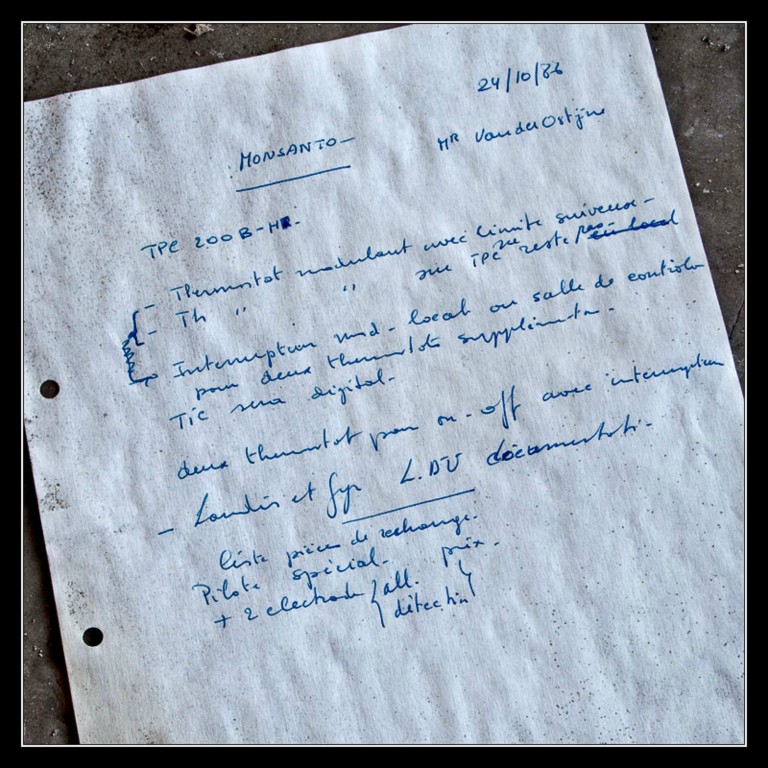 24/10/86
MONSANTO - Mr Van der Ostijne
TPC 200 B-HR.
- Thermostat modulant avec limite suiveuse -
- Th " " sur TPC reste pas en local
- Interruption mod - local ou salle de controle
pour deux thermostats supplémenta.
TIC sera digital.
deux thermostat pour on-off avec interruption
- Landis et Gyr L.DU documentati.
liste pièces de rechange.
Pilote spécial. prix.
+ 2 electrode { all.
détection